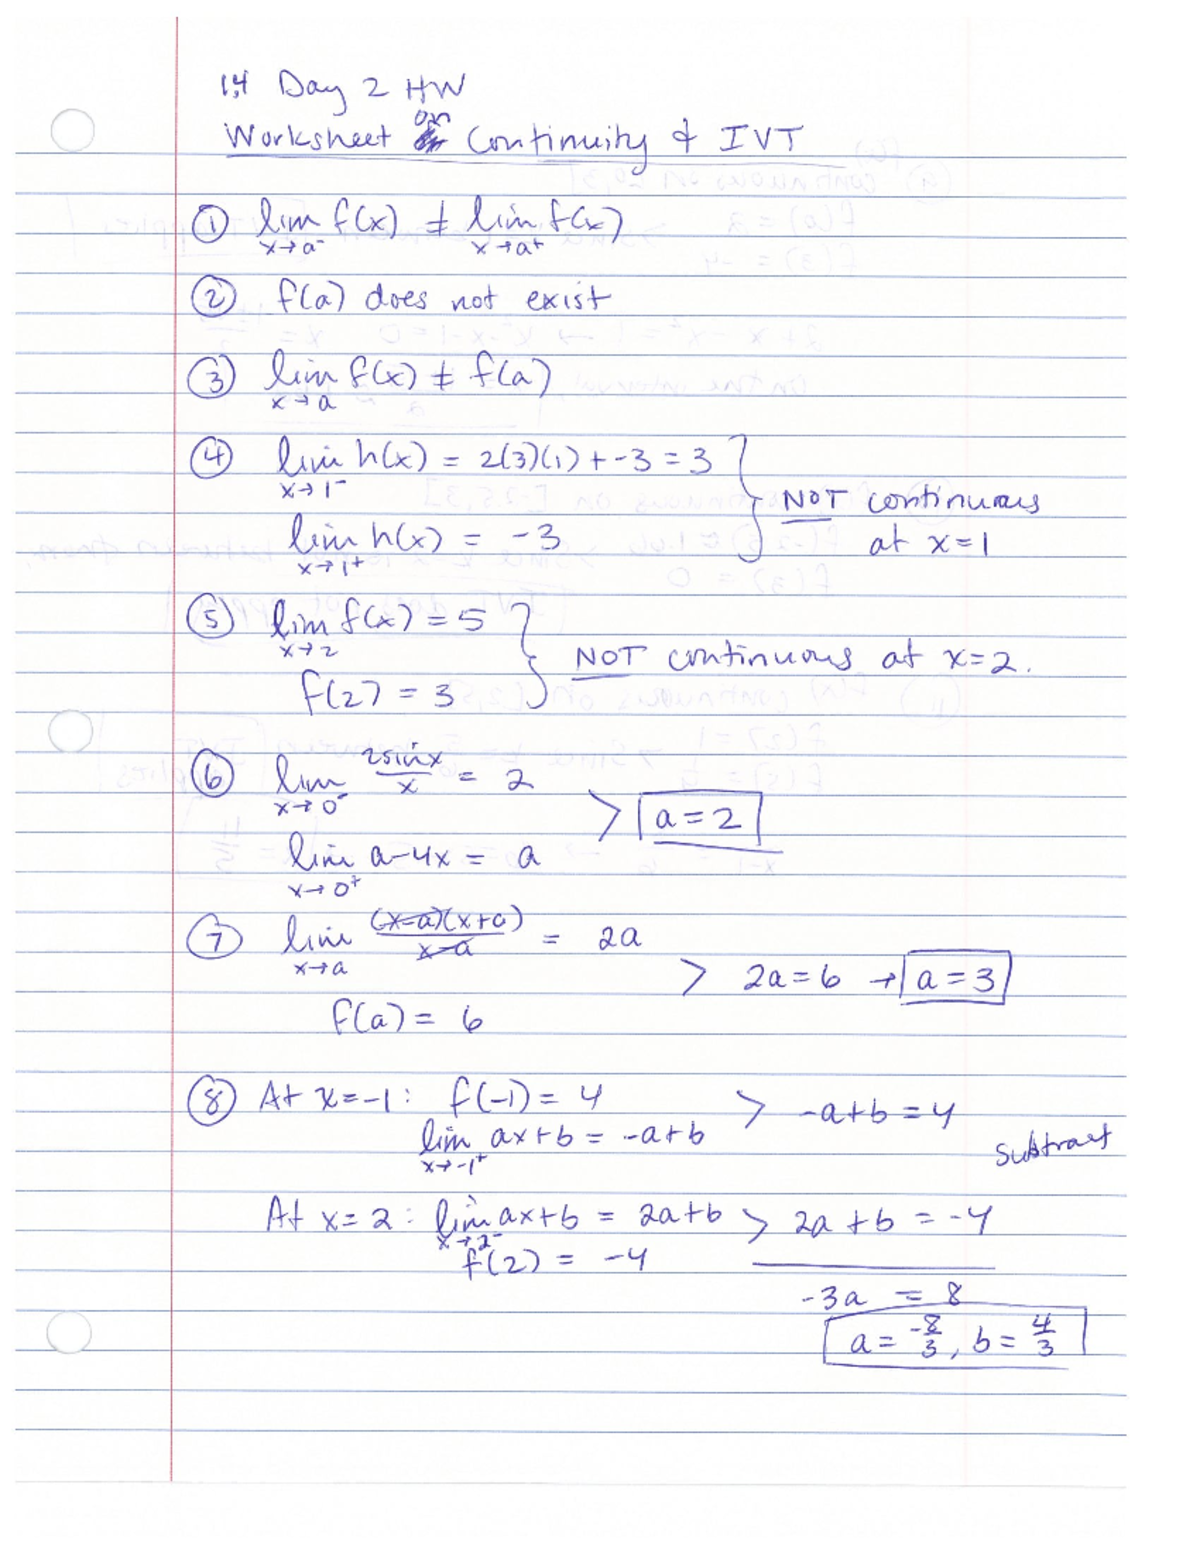 1.4 Day 2 HW
Worksheet on Continuity & IVT
① lim x→a⁻ f(x) ≠ lim x→a⁺ f(x)
② f(a) does not exist
③ lim x→a f(x) ≠ f(a)
④ lim x→1⁻ h(x) = 2(3)(1) + -3 = 3
NOT continuous
lim x→1⁺ h(x) = -3
at x=1
⑤ lim x→2 f(x) = 5
NOT continuous at x=2.
f(2) = 3
⑥ lim x→0⁻ 2sinx/x = 2
> a = 2
lim x→0⁺ a-4x = a
⑦ lim x→a (x-a)(x+a)/x-a = 2a
> 2a = 6 → a = 3
f(a) = 6
⑧ At x=-1: f(-1) = 4 > -a+b = 4
lim x→-1⁺ ax+b = -a+b
Subtract
At x=2: lim x→2⁻ ax+b = 2a+b > 2a+b = -4
f(2) = -4
-3a = 8
a = -8/3, b = 4/3